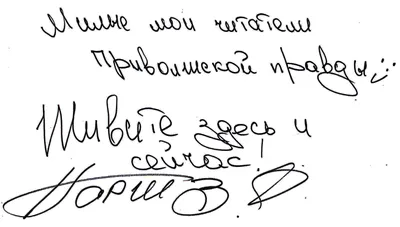 Милые мои читатели
Приволжской правды
Живите здесь и
сейчас!